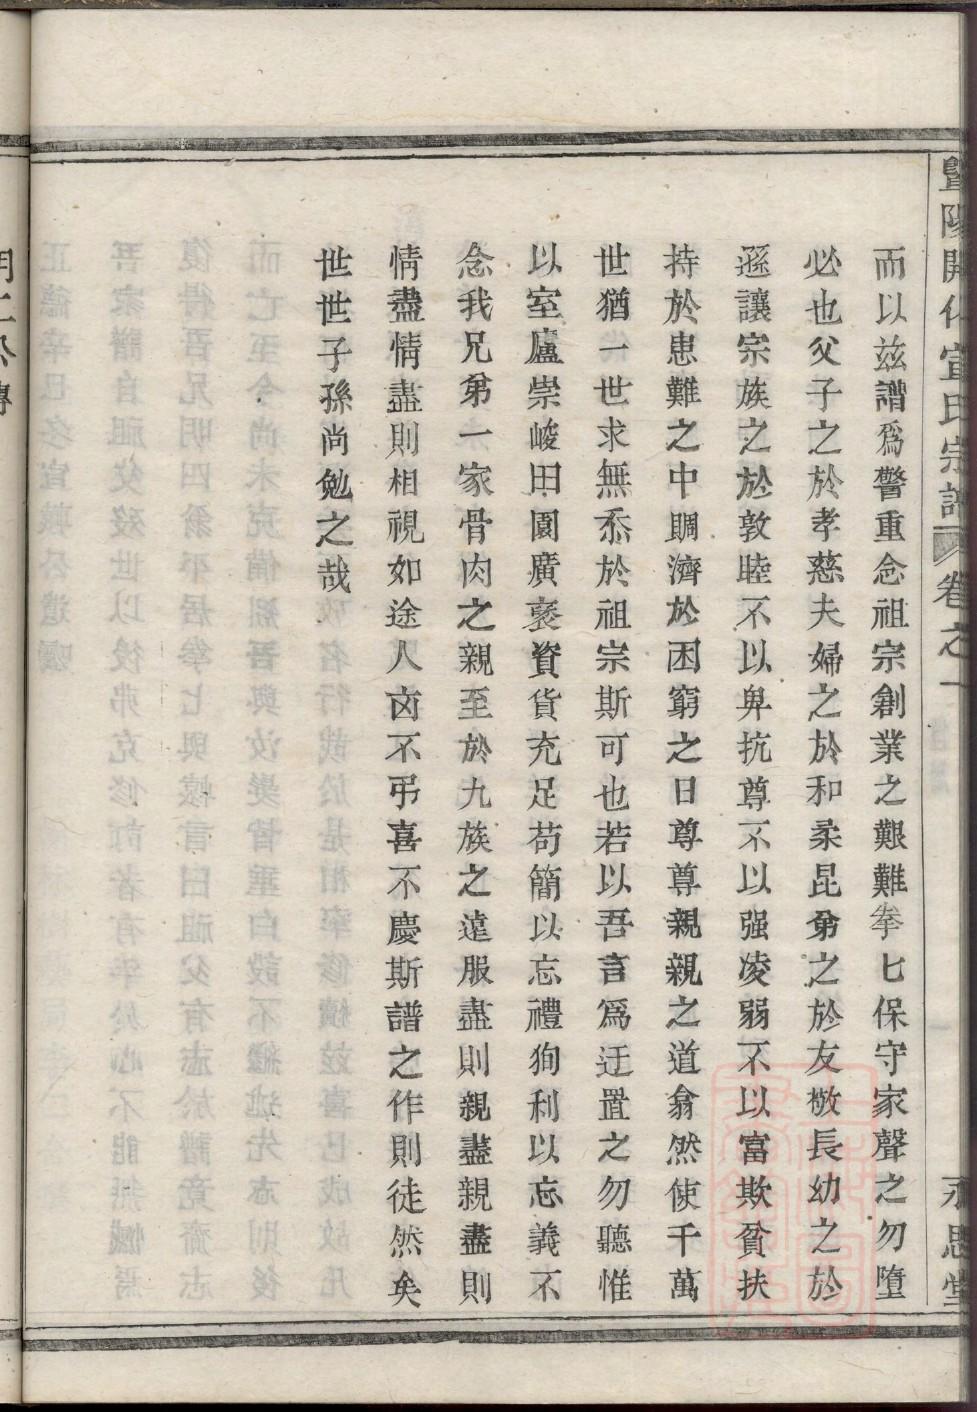 暨陽開化宣氏宗譜 卷之一 永思堂
而以兹譜爲警重念祖宗創業之艱難拳匕保守家聲之勿墮
必也父子之於孝慈夫婦之於和柔昆弟之於友敬長幼之於
遜讓宗族之於敦睦不以卑抗尊不以强凌弱不以富欺貧扶
持於患難之中賙濟於困窮之日尊尊親親之道翕然使千萬
世猶一世求無忝於祖宗斯可也若以吾言爲迂置之勿聽惟
以室廬崇峻田園廣袤資貨充足苟簡以忘禮狥利以忘義不
念我兄弟一家骨肉之親至於九族之遠服盡則親盡親盡則
情盡情盡則相視如途人凶不弔喜不慶斯譜之作則徒然矣
世世子孫尚勉之哉